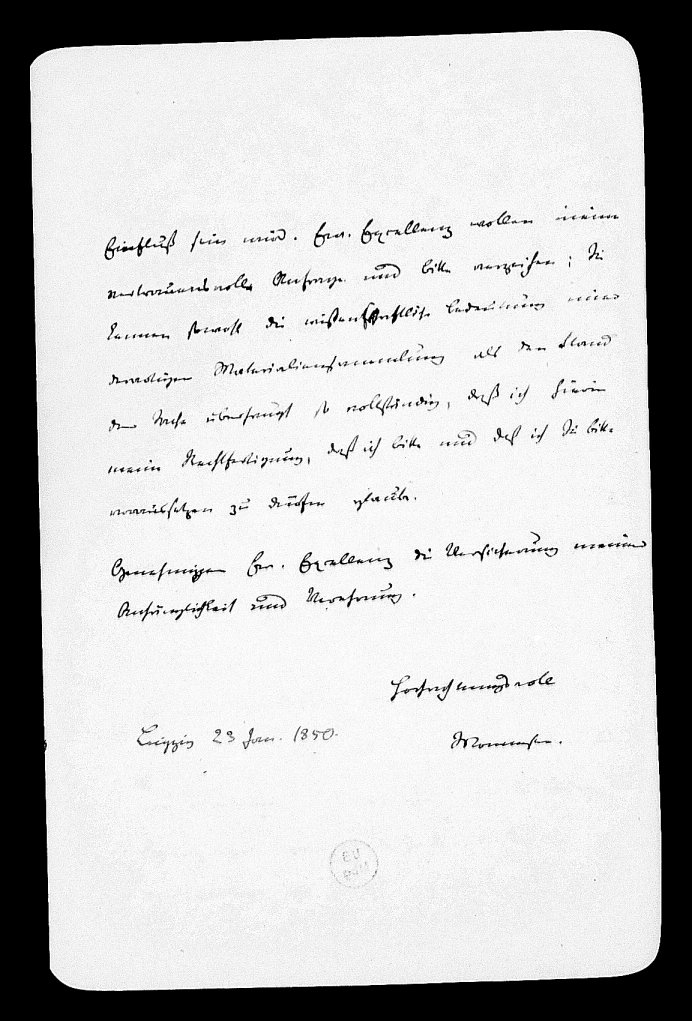 Einfluß sein wird. Ew. Excellenz wollen meine
vertrauensvolle Anfrage und bitte verzeihen; Sie
kennen sowohl die wissenschaftliche Bedeutung einer
derartigen Materialiensammlung als den Stand
der Sache überhaupt so vollständig, daß ich hierin
meine Rechtfertigung, daß ich bitte und daß ich Sie bitte
voraussetzen zu dürfen glaube.
Genehmigen Ew. Excellenz die Versicherung meiner
Anhänglichkeit und Verehrung.
Hochachtungsvoll
Leipzig 23 Jan. 1850.
Mommsen.